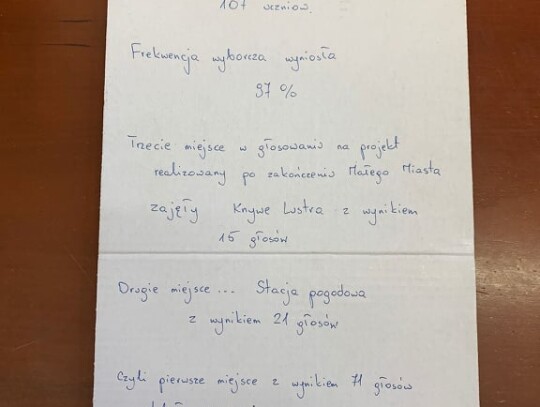 107 uczniów.
Frekwencja wyborcza wyniosła
97 %
Trzecie miejsce w głosowaniu na projekt
realizowany po zakończeniu Małego Miasta
zajęły Krzywe Lustra z wynikiem
15 głosów
Drugie miejsce... Stacja pogodowa
z wynikiem 21 głosów
Czyli pierwsze miejsce z wynikiem 71 głosów